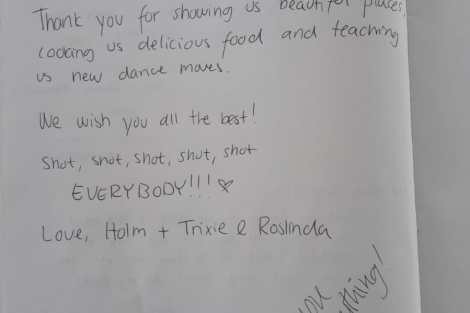 Thank you for showing us beautiful places,
cooking us delicious food and teaching
us new dance moves.
We wish you all the best!
Shot, shot, shot, shot, shot
EVERYBODY!!! ♡
Love, Holm + Trixie & Roslinda